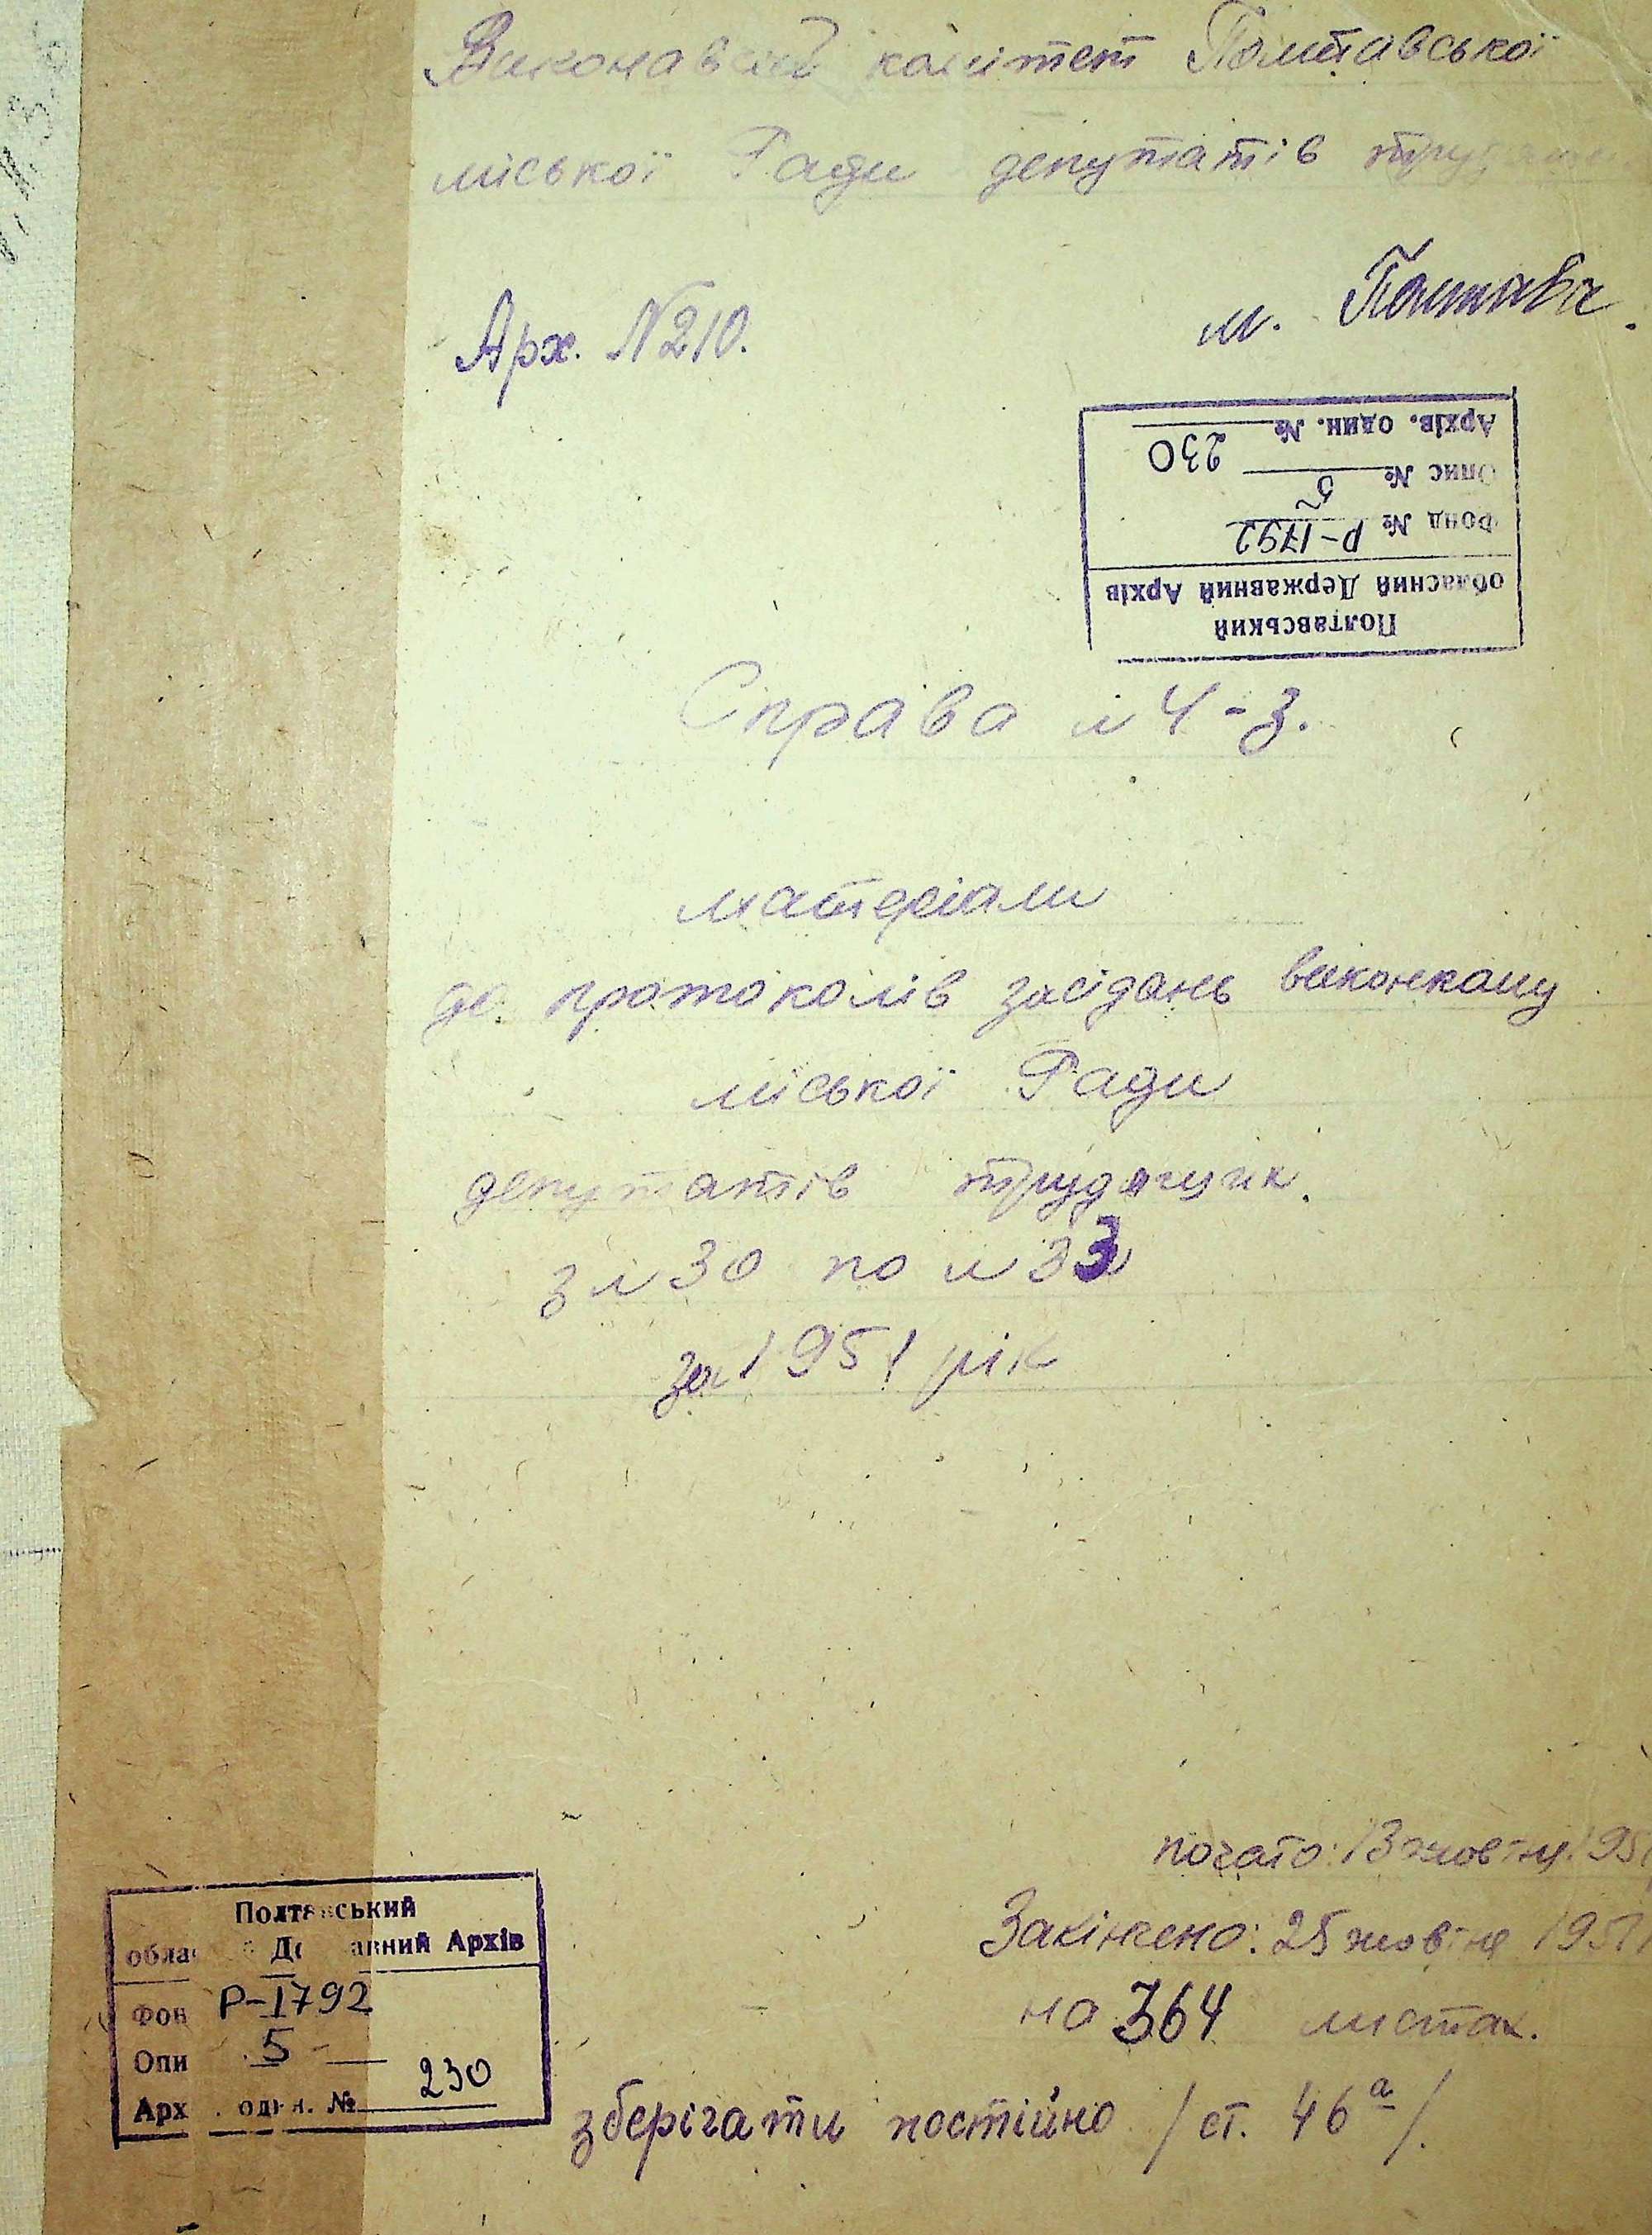 Виконавчий комітет Полтавської
міської Ради депутатів
м. Полтава.
Арх. №210.
Полтавський
обласний Державний Архів
Фонд № Р-1792
Опис № 5
Архів. один. № 230
Справа № 4-3.
матеріали
до протоколів засідань виконкому
міської Ради
депутатів трудящих.
з № 30 по № 33
за 1951 рік
почато: 13 жовтня 195
Закінчено: 25 жовтня 1951
на 364 листах.
зберігати постійно / ст. 46а /.
Полтавський
Архів
Р-1792
5
Арх один. № 230